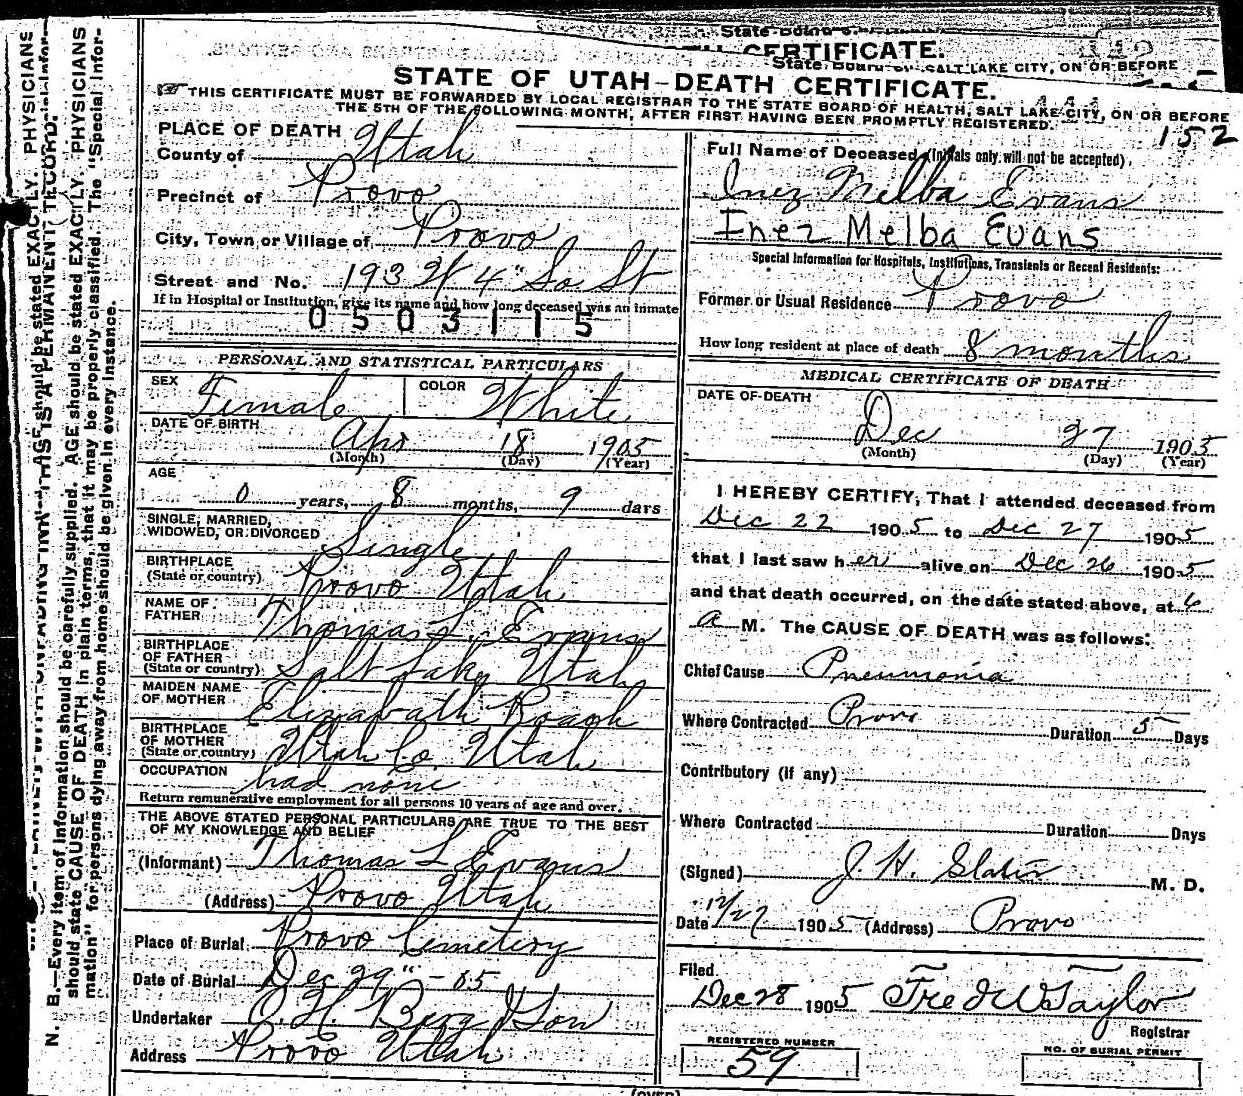 State Board
CERTIFICATE.
State Board
SALT LAKE CITY, ON OR BEFORE
STATE OF UTAH-DEATH CERTIFICATE.
THIS CERTIFICATE MUST BE FORWARDED BY LOCAL REGISTRAR TO THE STATE BOARD OF HEALTH, SALT LAKE CITY, ON OR BEFORE
THE 5TH OF THE FOLLOWING MONTH, AFTER FIRST HAVING BEEN PROMPTLY REGISTERED.
152
PLACE OF DEATH
County of Utah
Precinct of Provo
City, Town or Village of Provo
Street and No. 193 W 4" So St
If in Hospital or Institution, give its name and how long deceased was an inmate
0503115
PERSONAL AND STATISTICAL PARTICULARS
SEX Female COLOR White
DATE OF BIRTH
Apr 18 1905
(Month) (Day) (Year)
AGE
0 years, 8 months, 9 days
SINGLE, MARRIED,
WIDOWED, OR DIVORCED Single
BIRTHPLACE
(State or country) Provo Utah
NAME OF
FATHER Thomas L. Evans
BIRTHPLACE
OF FATHER
(State or country) Salt Lake Utah
MAIDEN NAME
OF MOTHER Elizabath Roach
BIRTHPLACE
OF MOTHER
(State or country) Utah Co. Utah
OCCUPATION had none
Return remunerative employment for all persons 10 years of age and over.
THE ABOVE STATED PERSONAL PARTICULARS ARE TRUE TO THE BEST
OF MY KNOWLEDGE AND BELIEF
(Informant) Thomas L Evans
(Address) Provo Utah
Place of Burial Provo Cemetery
Date of Burial Dec 29" - 05
Undertaker O. H. Berg & Son
Address Provo Utah
Full Name of Deceased (Initials only will not be accepted).
Inez Melba Evans
Inez Melba Evans
Special Information for Hospitals, Institutions, Transients or Recent Residents:
Former or Usual Residence Provo
How long resident at place of death 8 months
MEDICAL CERTIFICATE OF DEATH
DATE OF DEATH
Dec 27 1905
(Month) (Day) (Year)
I HEREBY CERTIFY, That I attended deceased from
Dec 22 1905 to Dec 27 1905
that I last saw her alive on Dec 26 1905
and that death occurred, on the date stated above, at 6
a M. The CAUSE OF DEATH was as follows:
Chief Cause Pneumonia
Where Contracted Provo Duration 5 Days
Contributory (if any)
Where Contracted Duration Days
(Signed) J. H. Slater M. D.
Date 12/27 1905 (Address) Provo
Filed
Dec 28 1905 Fred W Taylor
Registrar
REGISTERED NUMBER
59
NO. OF BURIAL PERMIT
(OVER)
THIS IS A PERMANENT RECORD.
N. B.—Every item of information should be carefully supplied. AGE should be stated EXACTLY. PHYSICIANS
should state CAUSE OF DEATH in plain terms, that it may be properly classified. The "Special Infor-
mation" for persons dying away from home should be given in every instance.